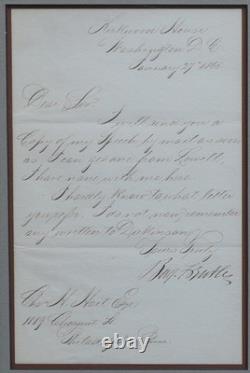 Kirkwood House
Washington D C
January 27th 1865
Dear Sir.
I will send you a
Copy of my Speech by mail as soon
as I can get one from Lowell,
I have none with me here
I hardly know to what letter
you refer. I do not now remember
any written to Dickinson
Yours Truly
Benj F Butler
Chas H Hart Esq
Philadelphia Penn
thejohnfleming.com